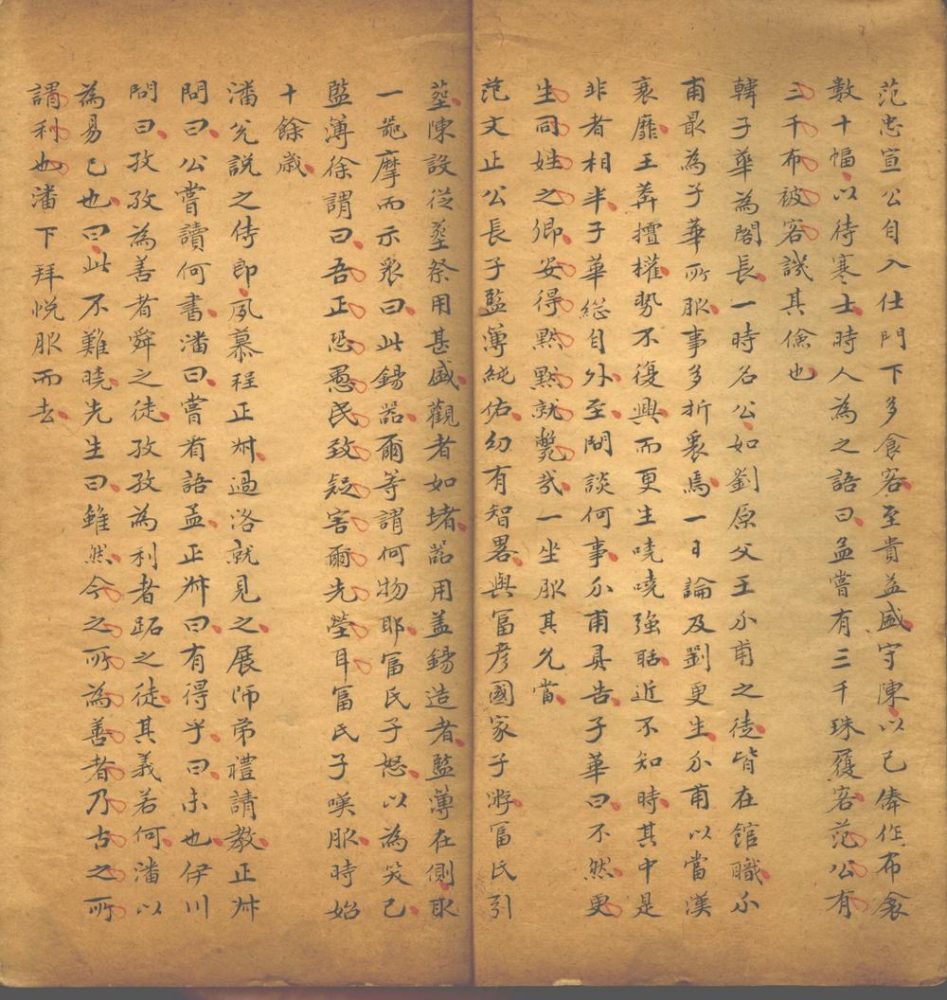 范忠宣公自入仕門下多食客至貴益盛守陳以己俸作布衾
數十幅以待寒士時人為之語曰孟嘗有三千珠履客范公有
三千布被客譏其儉也
韓子華為閣長一時名公如劉原父王介甫之徒皆在館職介
甫最為子華所服事多折衷焉一日論及劉更生介甫以當漢
衰靡王莽擅權勢不復興而更生嘵嘵強聒近不知時其中是
非者相半子華緫自外至問談何事介甫具告子華曰不然更
生同姓之卿安得黙黙就斃㦲一坐服其允當
范文正公長子監簿純佑幼有智畧與冨彦國家子游冨氏引
塟陳設從塟祭用甚盛觀者如堵器用盖鍚造者監薄在側取
一甗摩而示衆曰此鍚器爾等謂何物耶冨民子怒以為笑己
監薄徐謂曰吾正恐愚民致疑害爾先塋耳冨氏子嘆服時始
十餘歳
潘兊說之侍郎夙慕程正叔過洛就見之展師弟禮請教正叔
問曰公嘗讀何書潘曰嘗看語孟正叔曰有得乎曰未也伊川
問曰孜孜為善者舜之徒孜孜為利者跖之徒其義若何潘以
為易已也曰此不難曉先生曰雖然今之所為善者乃古之所
謂利也潘下拜悅服而去